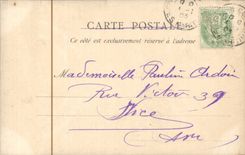 CARTE POSTALE
Ce côté est exclusivement réservé à l'adresse
Mademoiselle Paulin
Rue Victor 39
Nice